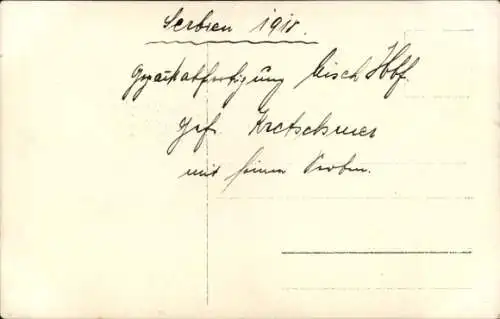 Serbien 1918.
Gepäckabfertigung Nisch Hbf.
Gefr. Kretschmer
mit seinen